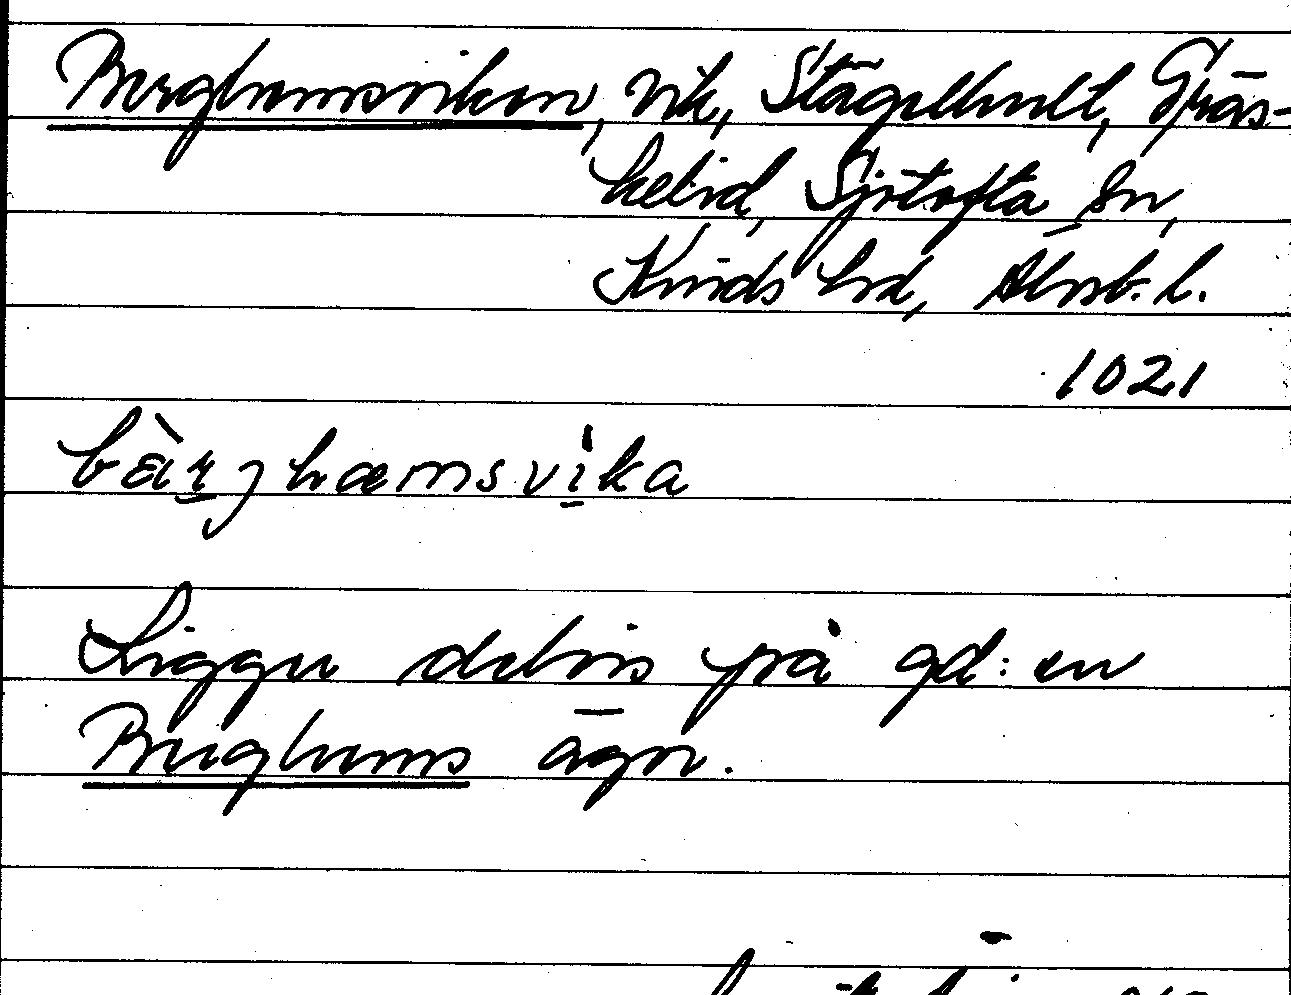 Berghemsviken, vik, Stägelhult, Gräs-
hebid, Sjötofta sn,
Kinds hd, Älvsb. l.
1021
bär̲jhæmsvi̲ka
Ligger delvis på gd:en
Berghems ägor.